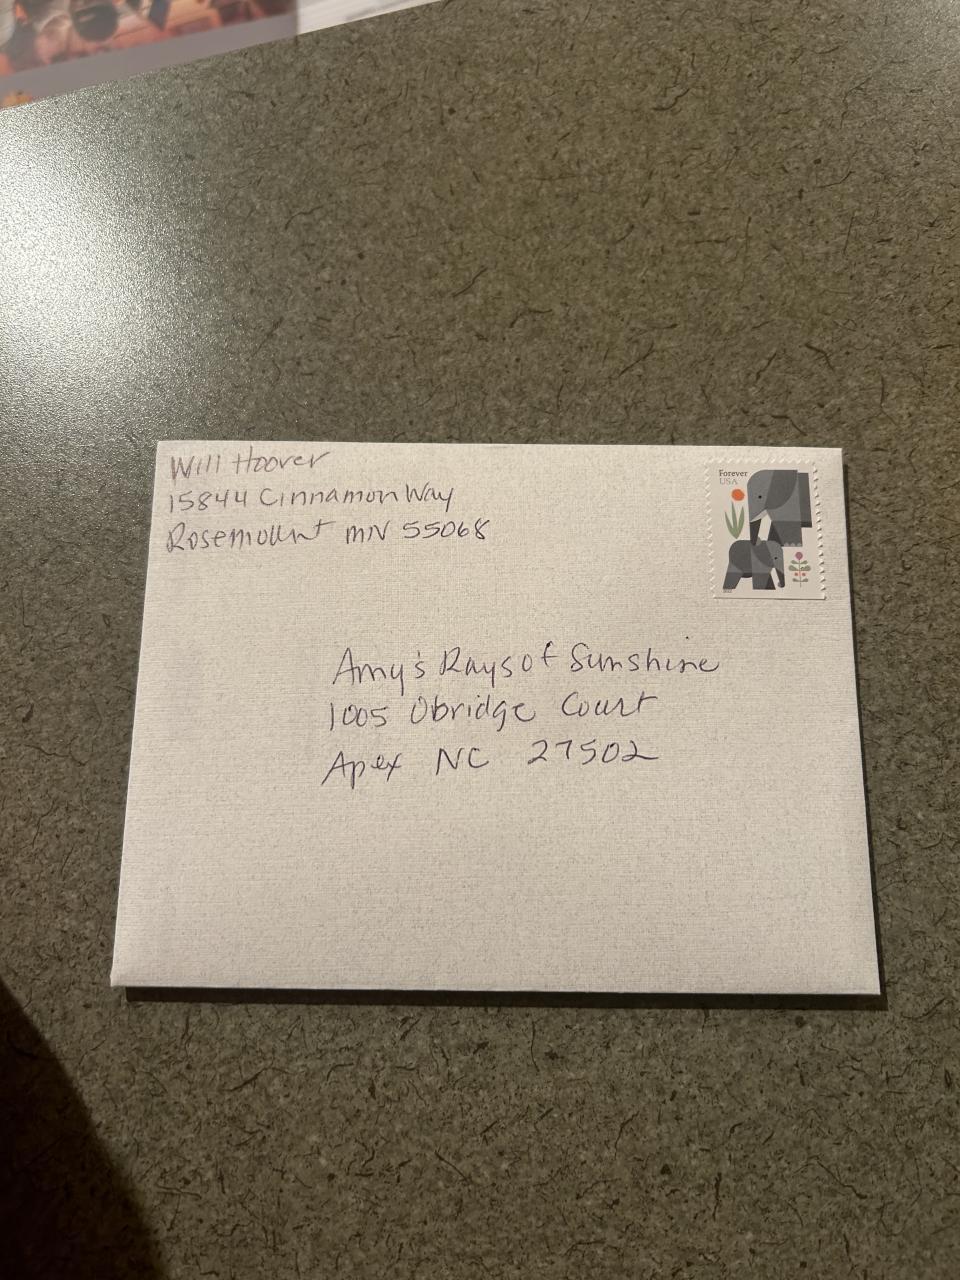 Will Hoover
15844 Cinnamon Way
Rosemount MN 55068
Forever
USA
Amy's Rays of Sunshine
1005 Obridge Court
Apex NC 27502